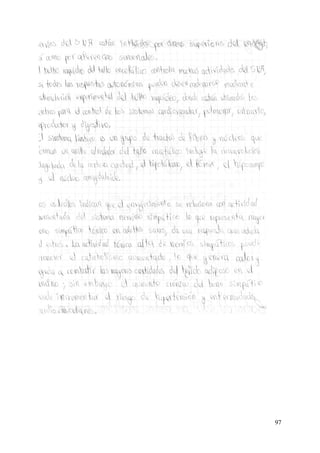 del S.N.A. están influidos por áreas superiores del
como por aferencias sensoriales.
l bulbo raquídeo del tallo encefálico controla muchas actividades del S.N.A,
si todas las respuestas autonómicas pueden desencadenarse mediante
estimulación experimental del bulbo raquídeo, donde están situados los
centros para el control de los sistemas cardiovascular, pulmonar, urinario,
reproductor y digestivo.
l sistema límbico es un grupo de tractos de fibras y núcleos que
forman un anillo alrededor del tallo encefálico. Incluye la circunvolución
de la corteza cerebral, el hipotálamo, el fórnix, el hipocampo
y el núcleo amigdalino.
os estudios indican que el envejecimiento se relaciona con actividad
aumentada del sistema nervioso simpático lo que representa mayor
tono simpático tónico en adultos sanos, da una respuesta aumentada
al estrés. La actividad tónica alta de nervios simpáticos puede
el metabolismo aumentado, lo que genera calor y
ayuda a combatir las mayores cantidades del tejido adiposo en el
; sin embargo, el aumento crónico del tono simpático
puede incrementar el riesgo de hipertensión y enfermedades
97